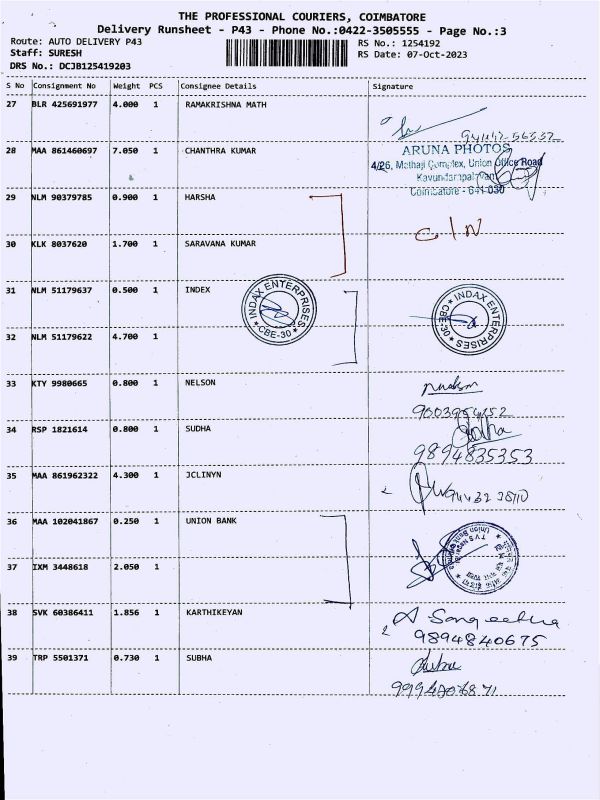 THE PROFESSIONAL COURIERS, COIMBATORE
Delivery Runsheet - P43 - Phone No.:0422-3505555 - Page No.:3
Route: AUTO DELIVERY P43
RS No.: 1254192
Staff: SURESH
RS Date: 07-Oct-2023
DRS No.: DCJB125419203
S No Consignment No Weight PCS Consignee Details Signature
27 BLR 425691977 4.000 1 RAMAKRISHNA MATH
28 MAA 861460697 7.050 1 CHANTHRA KUMAR
ARUNA PHOTOS
4/26, Mathaji Complex, Union Office Road
Kavundampalayam
Coimbatore - 641 030
29 NLM 90379785 0.900 1 HARSHA
30 KLK 8037620 1.700 1 SARAVANA KUMAR
31 NLM 51179637 0.500 1 INDEX
INDAX ENTERPRISES
CBE-30
INDAX ENTERPRISES
CBE-30
32 NLM 51179622 4.700 1
33 KTY 9980665 0.800 1 NELSON
34 RSP 1821614 0.800 1 SUDHA
9894835353
35 MAA 861962322 4.300 1 JCLINYN
36 MAA 102041867 0.250 1 UNION BANK
37 IXM 3448618 2.050 1
38 SVK 60386411 1.856 1 KARTHIKEYAN
A Sangeetha
9894840675
39 TRP 5501371 0.730 1 SUBHA